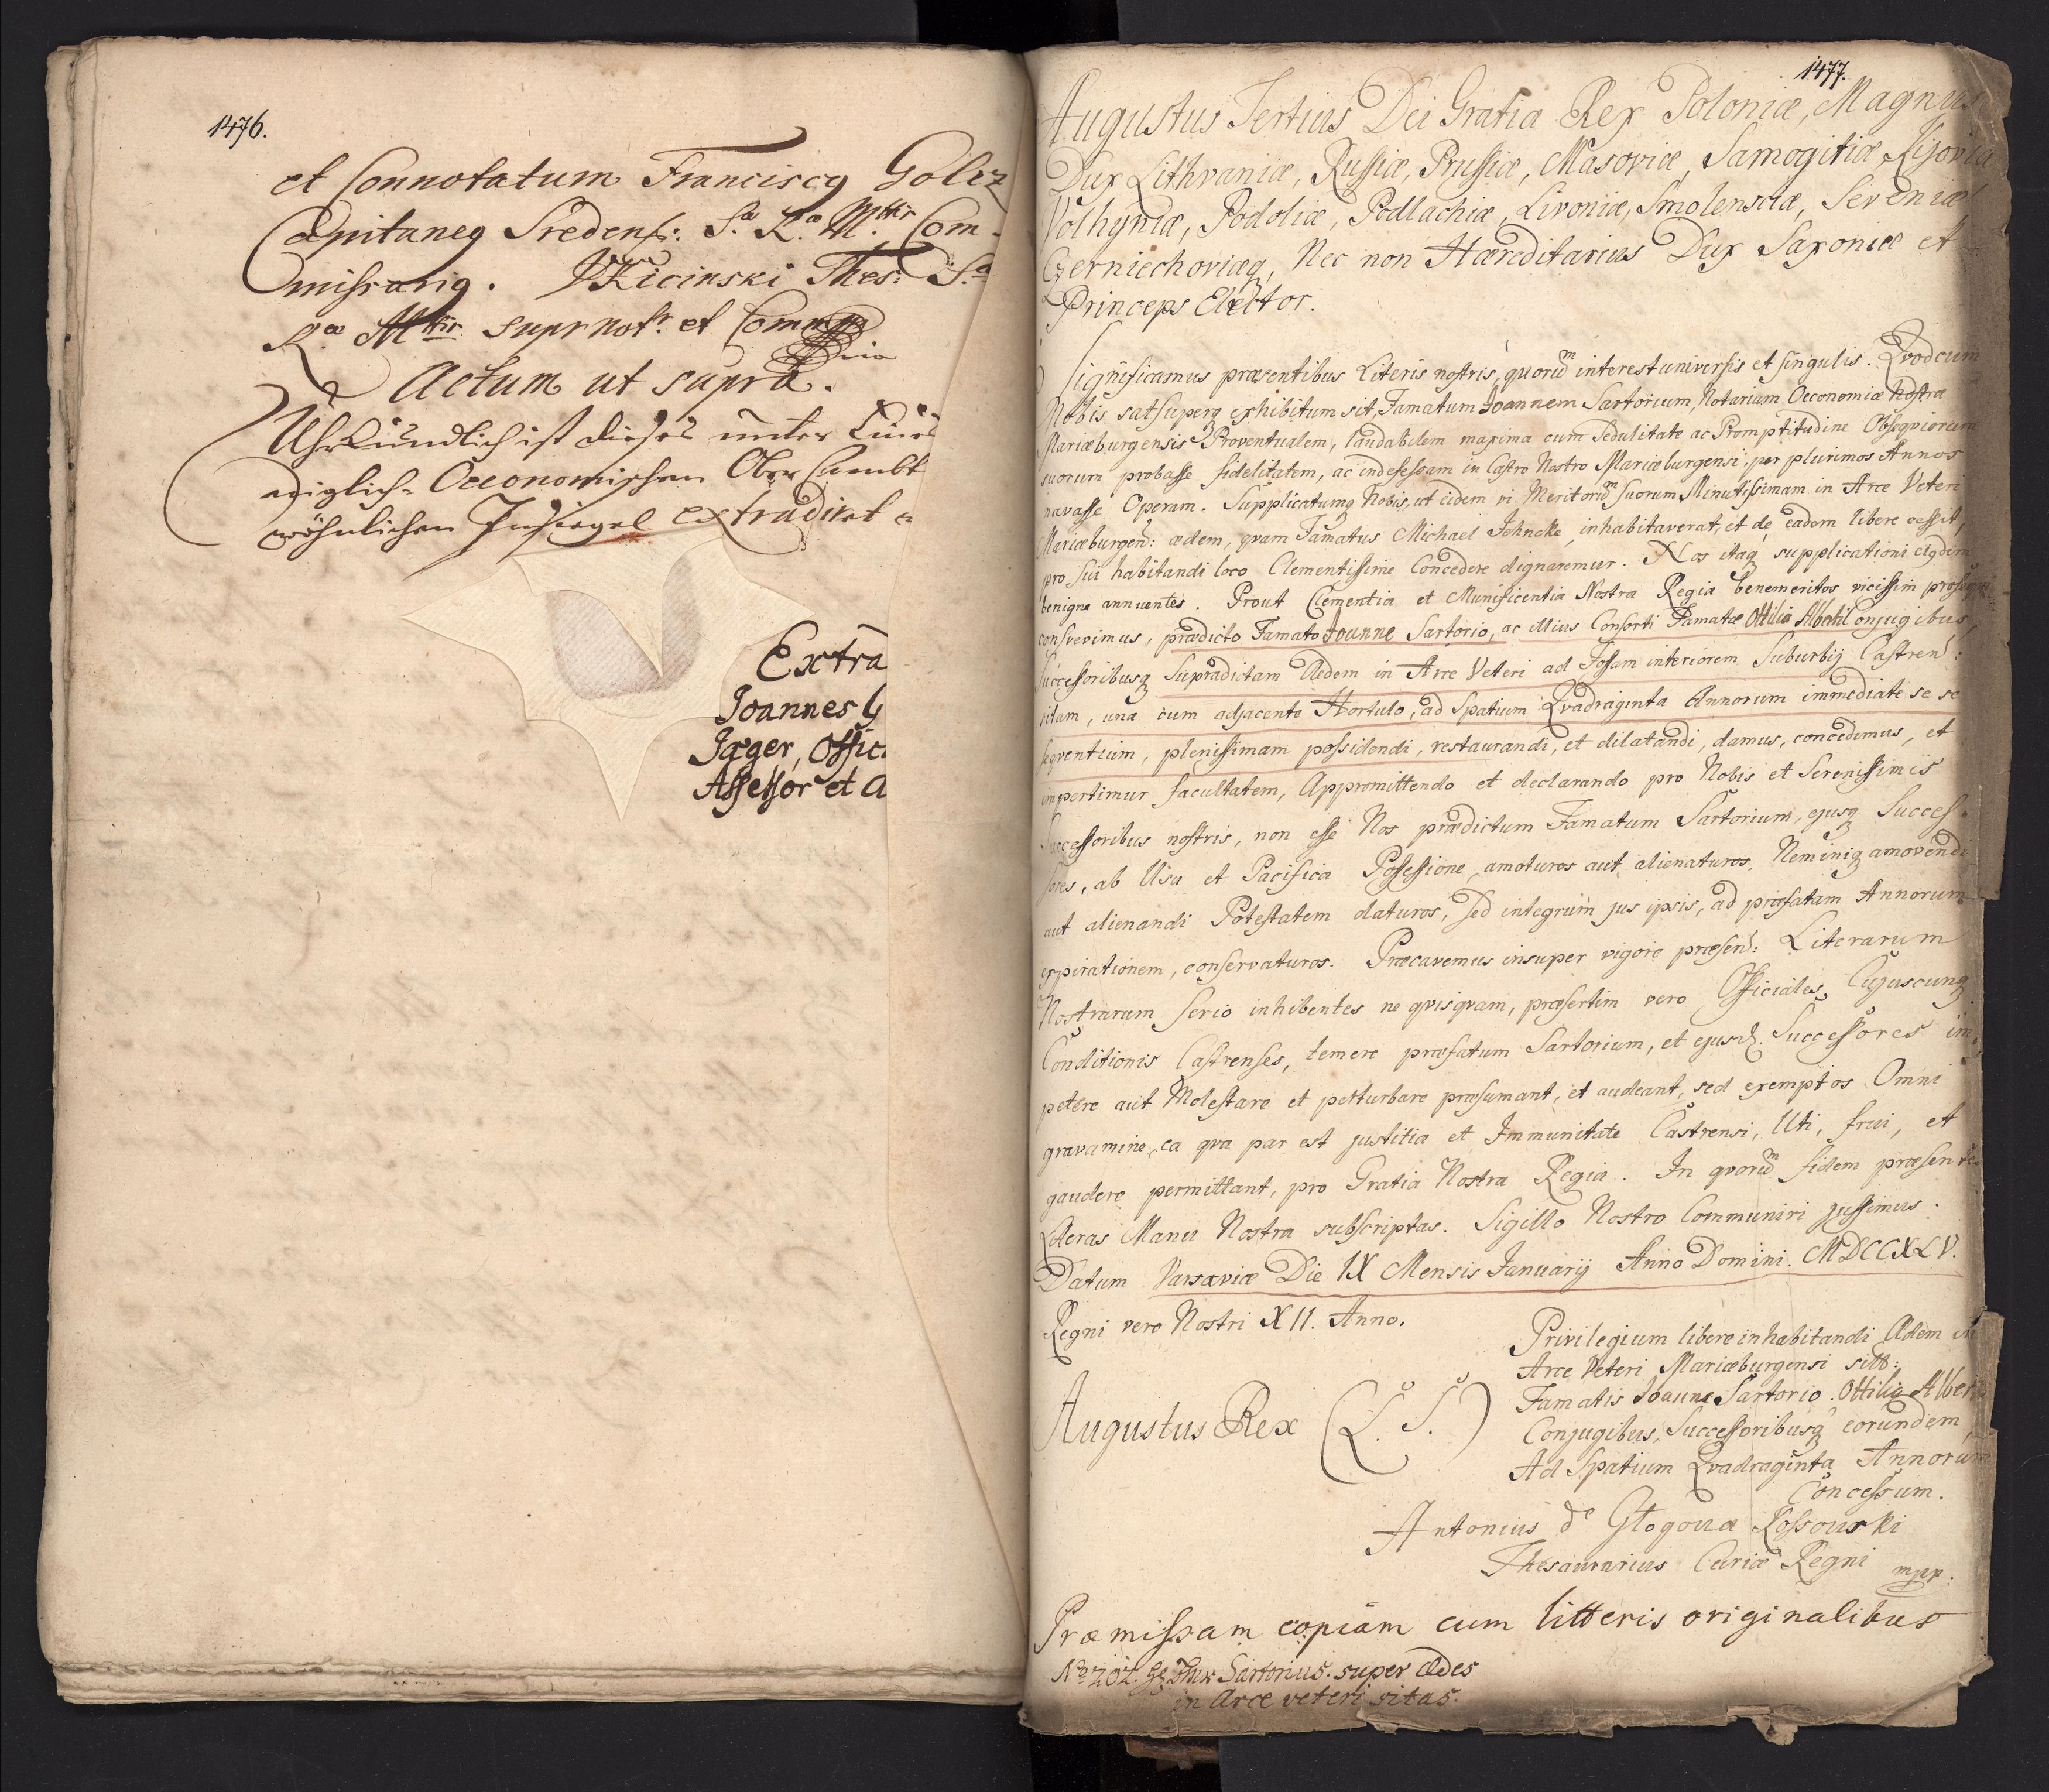 1476.
et Connotatum Franciscq Goltz
Capitaneq Sredens: S.æ R.æ M.ttis Com-
missariq. JKicinski Thes: S.æ
R.æ M.ttis suprnotr. et Comm
Actum ut supra.
Uhrkundlich ist dieses unter
niglich- Oeconomischen Ober
wöhnlichen Insiegel extradiret
Extra
Joannes G
Jæger, Offic:
Assessor et A
1477.
Augustus Tertius Dei Gratia Rex Poloniæ, Magnus
Dux Lithvaniæ, Russiæ, Prussiæ, Masoviæ, Samogitiæ Kijoviæ
Volhyniæ, Podoliæ, Podlachiæ, Livoniæ, Smolensciæ, Severiæ
Czerniechoviæq, Nec non Hæreditarius Dux Saxoniæ et
Princeps Elector.
Significamus præsentibus Literis nostris, quorũm interest universis et singulis. Qvodcum
Nobis satsuperq exhibitum sit, Famatum Joannem Sartorium, Notarium Oeconomiæ Nostræ
Mariæburgensis Proventualem, laudabilem maxima cum Sedulitate ac Promptitudine Obseqviorum
suorum probasse fidelitatem, ac indefessam in Castro Nostro Mariæburgensi per plurimos Annos
navasse Operam. Supplicatumq Nobis, ut eidem vi Meritorũm suorum Minutissimam in Arce Veteri
Mariæburgen: ædem, qvam Famatus Michael Jehncke inhabitaverat, et de eadem libere cessit,
pro sui habitandi loco Clementissime Concedere dignaremur. Nos itaq supplicationi ejqdem
benigne annuentes. Prout Clementia et Munificentia Nostra Regia benemeritos vicissim proseqvi
consvevimus, prædicto Famato Joanne Sartorio, ac illius Consorti Famatæ Ottilia Alberti Conjugibus,
Successoribusq Supradictam Ædem in Arce Veteri ad Fossam interiorem Suburbij Castren:
sitam, una cum adjacente Hortulo, ad Spatium Qvadraginta Annorum immediate se se
seqventium, plenissimam possidendi, restaurandi, et dilatandi, damus, concedimus, et
impertimur facultatem, Appromittendo et declarando pro Nobis et Serenissimis
Successoribus nostris, non esse Nos prædictum Famatum Sartorium, ejusq Succes-
sores, ab Usu et Pacifica Possessione amoturos aut alienaturos, Neminiq amovendi
aut alienandi Potestatem daturos, sed integrum jus ipsis, ad præfatam Annorum
expirationem, conservaturos. Præcavemus insuper vigore præsen: Literarum
Nostrarum Serio inhibentes ne qvisqvam, præsertim vero Officiales Cujuscunq
Conditionis Castrenses, temere præfatum Sartorium, et ejusd. Successores im-
petere aut Molestare et perturbare præsumant, et audeant, sed exemptos Omni
gravamine, ea qva par est justitia et Immunitate Castrensi, Uti, frui, et
gaudere permittant, pro Gratia Nostra Regia. In qvorũm fidem præsentes
Literas Manu Nostra subscriptas. Sigillo Nostro Communiri jussimus.
Datum Varsaviæ Die IX Mensis Januarij Anno Domini. MDCCXLV.
Regni vero Nostri XII. Anno.
Augustus Rex (L. S.)
Privilegium libere inhabitandi Ædem in
Arce Veteri Mariæburgensi sitt:
Famatis Joanne Sartorio. Ottilia Alberti
Conjugibus, Successoribusq eorundem
Ad Spatium Qvadraginta Annorum
Concessum.
Antonius de Głogowa Kossowski
Thesaurarius Curiæ Regni mpp.
Præmissam copiam cum litteris originalibus
No 202. Sartorius. super ædes
in Arce veteri sitas.